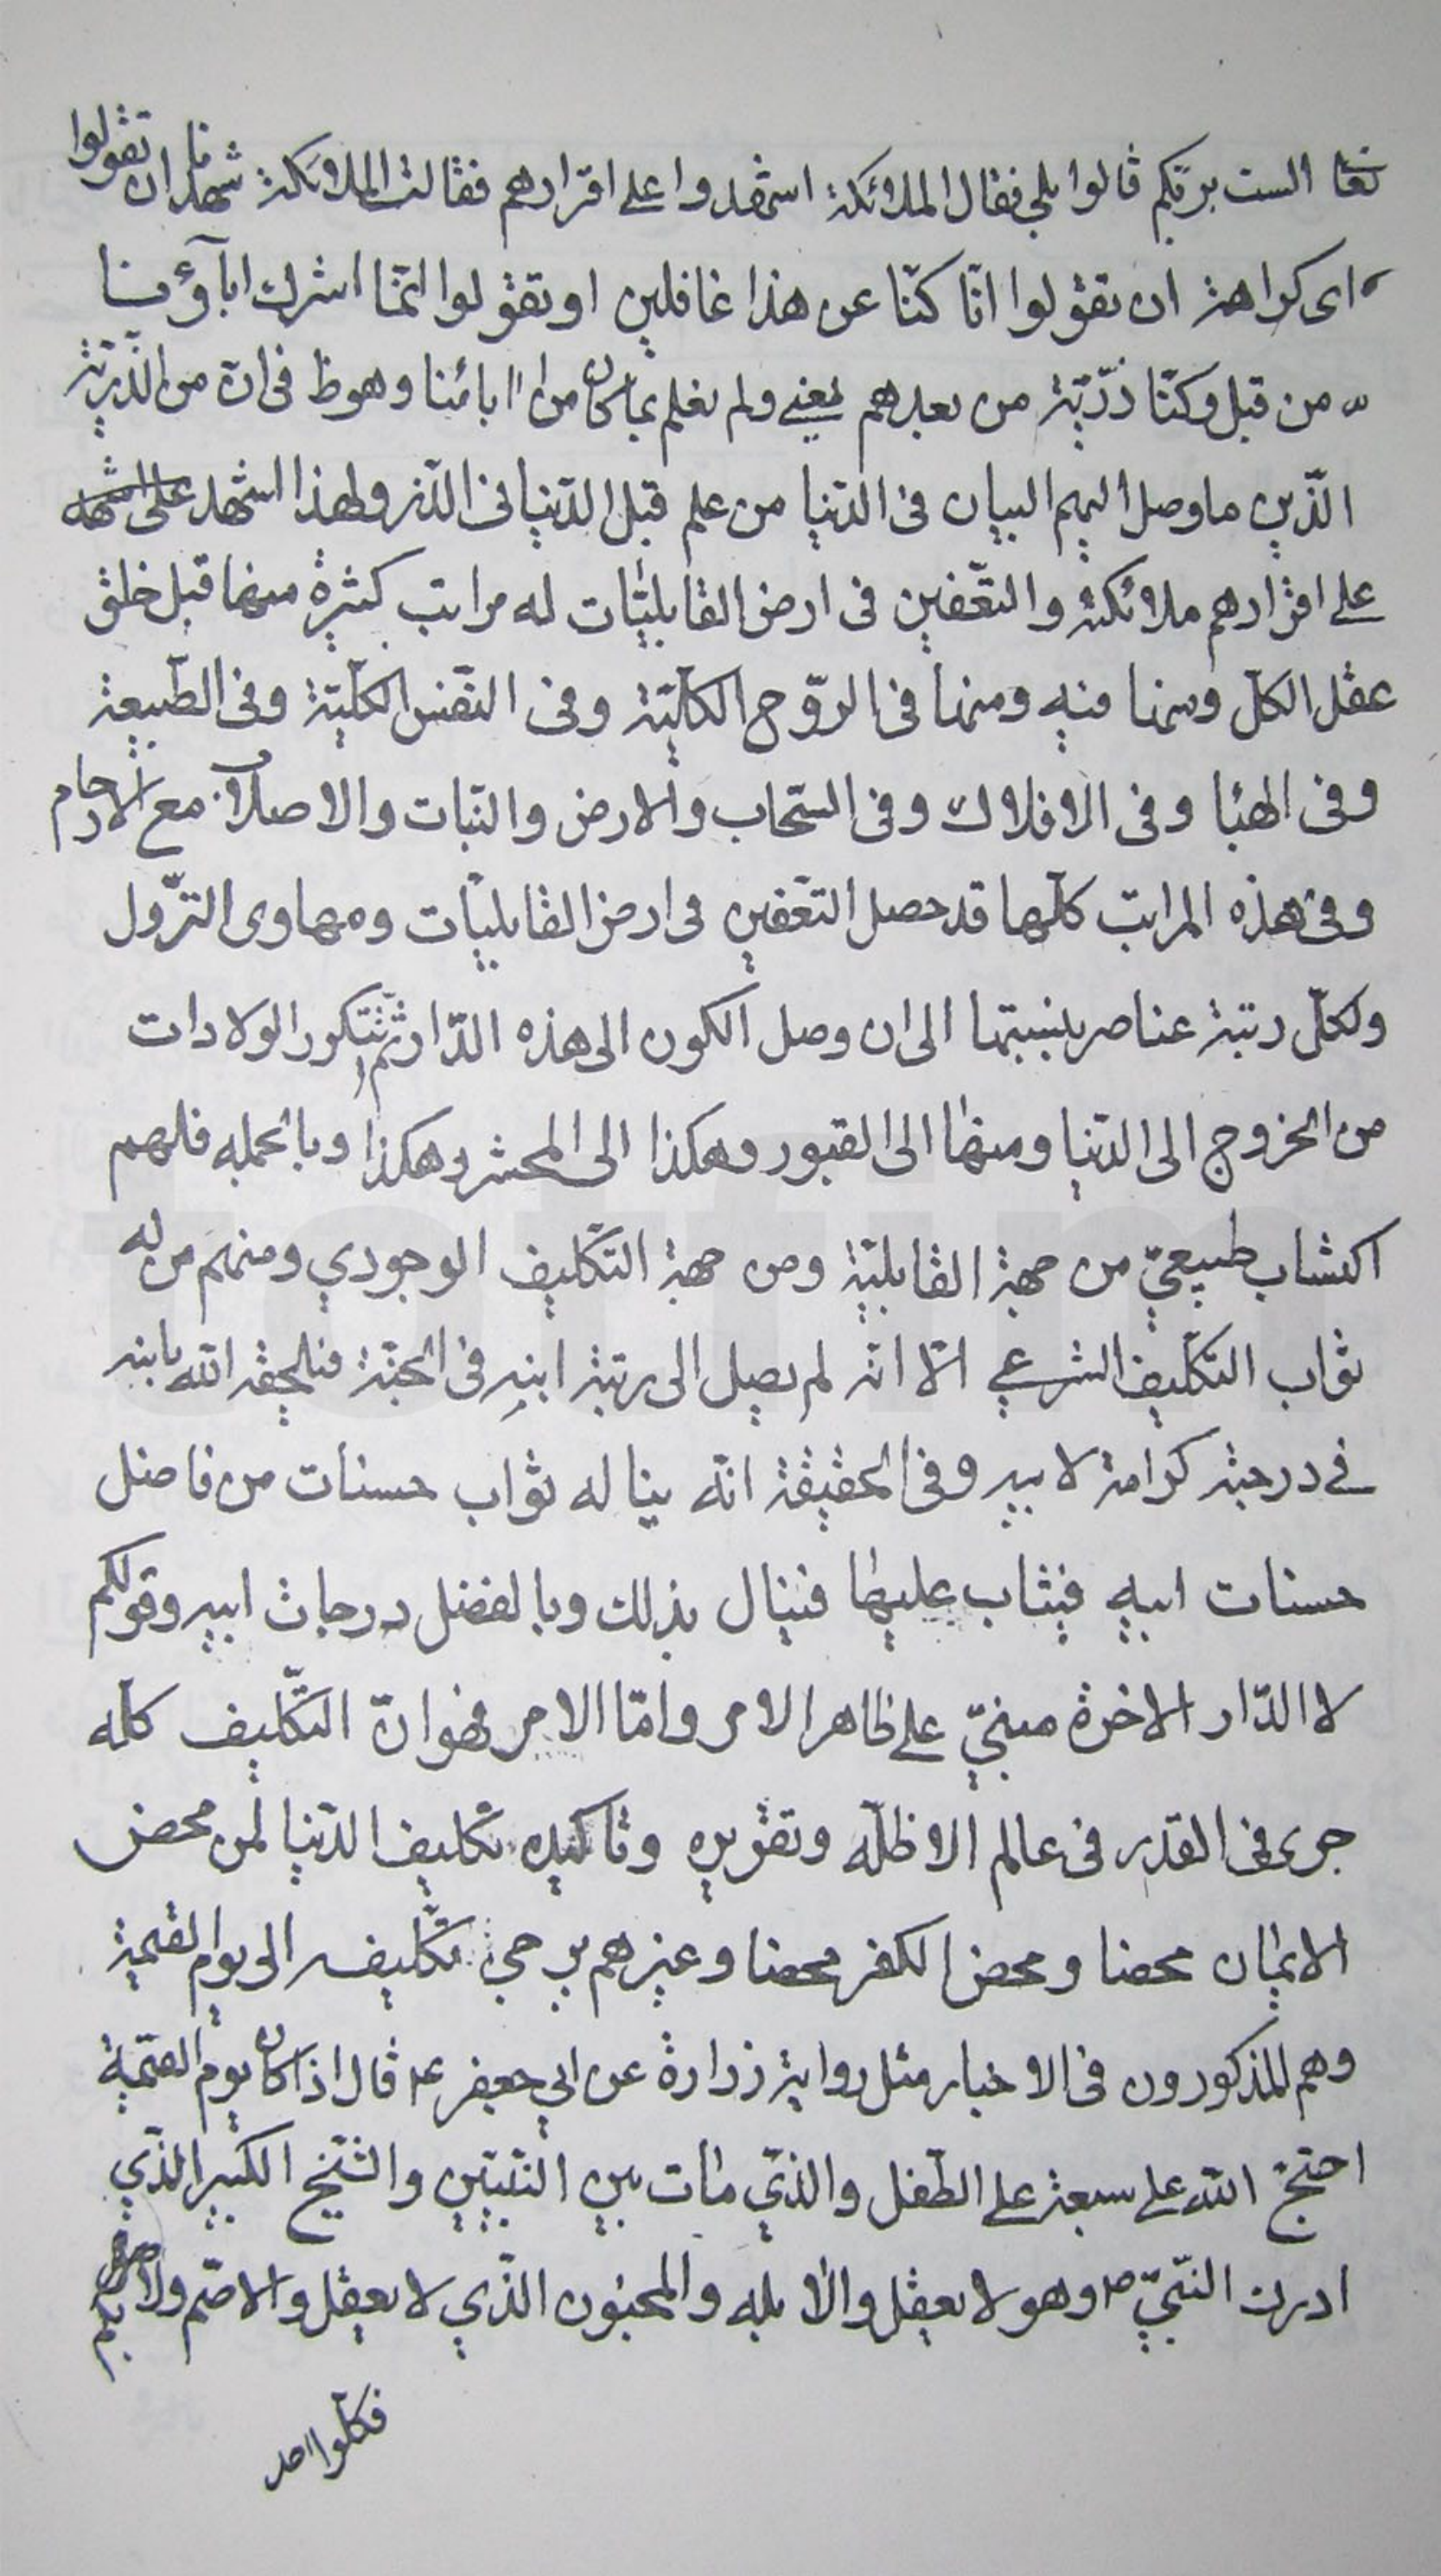 تعا الست بربكم قالوا بلى فقال الملائكة اشهدوا على اقرارهم فقالت الملائكة شهدنا ان تقولوا
اى كراهة ان تقولوا انّا كنّا عن هذا غافلين او تقولوا انّما اشرك اباؤنا
من قبل وكنّا ذرّيّة من بعدهم يعنى ولم نعلم بما كان من ابائنا وهو ظ فى انّ من الذّرّيّة
الّذين ما وصل اليهم البيان فى الدّنيا من علم قبل الدّنيا فى الذّر ولهذا اشهد على اشهد
على اقرارهم ملائكته والتّعفين فى ارض القابليّات له مراتب كثيرة منها قبل خلق
عقل الكلّ ومنها فيه ومنها فى الرّوح الكلّيّة وفى النّفس الكلّيّة وفى الطّبيعة
وفى الهبا وفى الافلاك وفى السّحاب والارض والنّبات والاصلاب مع الارحام
وفى هذه المراتب كلّها قد حصل التّعفين فى ارض القابليّات ومهاوى النّزول
ولكلّ رتبة عناصر بنسبتها الى ان وصل الكون الى هذه الدّار ثمّ تتكرر الولادات
من الخروج الى الدّنيا ومنها الى القبور وهكذا الى المحشر وهكذا وبالجمله فلهم
اكتساب طبيعىّ من جهة القابليّة ومن جهة التّكليف الوجودي ومنهم من له
ثواب التّكليف الشرعي الّا انّه لم يصل الى رتبة ابيه فى الجنّة فيلحقه الله بابيه
فى درجته كرامة لابيه وفى الحقيقة انّه يناله ثواب حسنات من فاضل
حسنات ابيه فيثاب عليها فينال بذلك وبالفضل درجات ابيه وقولكم
لا الدّار الاخرة مبنىّ على ظاهر الامر وامّا الامر فهو انّ التّكليف كلّه
جرى فى القدر فى عالم الاظلّه وتقويره وتاكيده تكليف الدّنيا لمن محض
الايمان محضا ومحض الكفر محضا وغيرهم يرجى تكليفه الى يوم القيمة
وهم المذكورون فى الاخبار مثل رواية زرارة عن ابي جعفر ع قال اذا كان يوم القيمة
احتجّ الله على سبعة على الطّفل والذّي مات بين النّبيّين والشّيخ الكبير الذّي
ادرك النّبيّ ص وهو لا يعقل والابله والمجنون الذّي لا يعقل والاصّم والابكم
فكلّ واحد